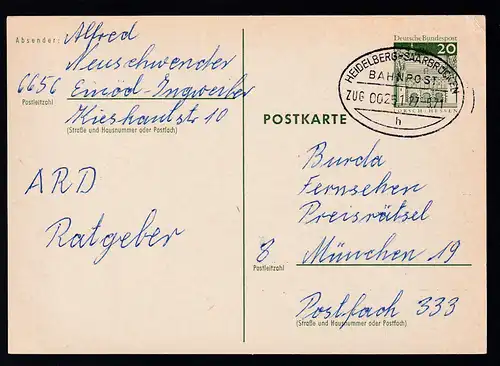 Absender: Alfred
Neuschwender
6656 Einöd-Ingweiler
Postleitzahl
Kieshaulstr 10
(Straße und Hausnummer oder Postfach)
ARD
Ratgeber
Deutsche Bundespost
20
HEIDELBERG-SAARBRÜCKEN
BAHNPOST
ZUG
h
LORSCH/HESSEN
POSTKARTE
Burda
Fernsehen
Preisrätsel
8 München 19
Postleitzahl
Postfach 333
(Straße und Hausnummer oder Postfach)